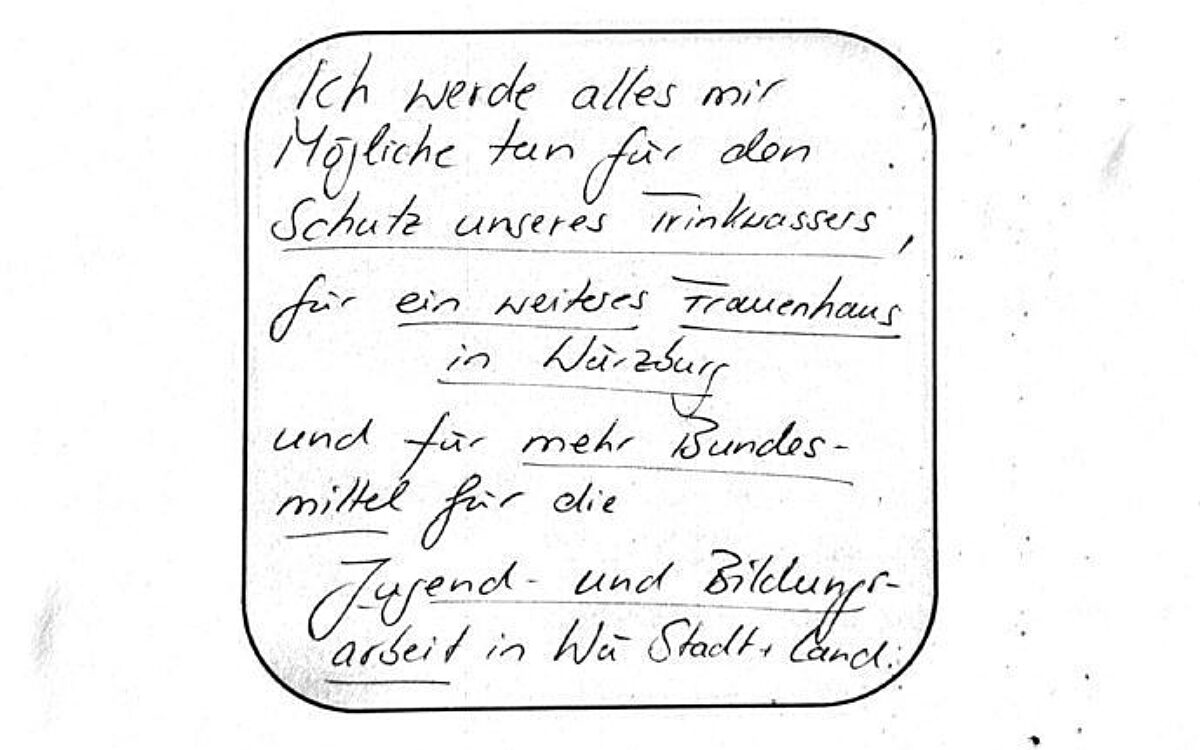 Ich werde alles mir
Mögliche tun für den
Schutz unseres Trinkwassers,
für ein weiteres Frauenhaus
in Würzburg
und für mehr Bundes-
mittel für die
Jugend- und Bildungs-
arbeit in Wü Stadt + Land.